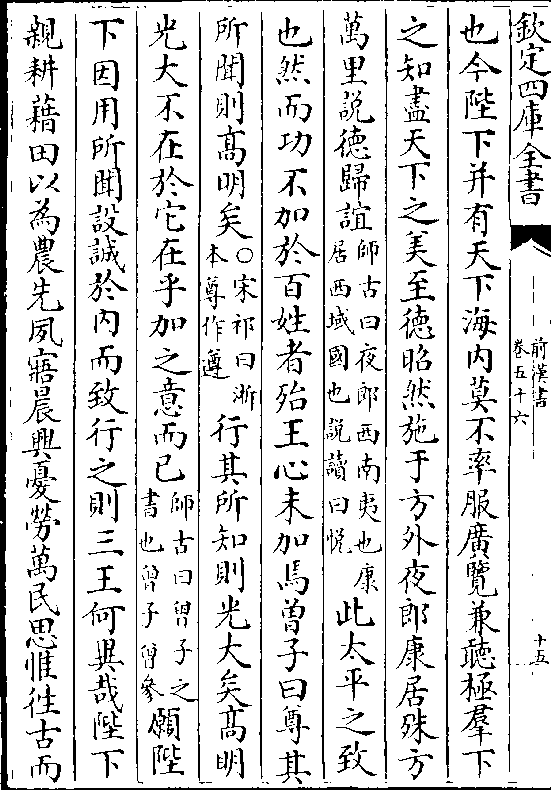 欽定四庫全書
前漢書
卷五十六
十五
也今陛下并有天下海内莫不率服廣覽兼聽極羣下
之知盡天下之美至德昭然施于方外夜郎康居殊方
萬里說德歸誼師古曰夜郎西南夷也康居西域國也說讀曰恱此太平之致
也然而功不加於百姓者殆王心未加焉曾子曰尊其
所聞則髙明矣○宋祁曰浙本尊作遵行其所知則光大矣髙明
光大不在於它在乎加之意而已師古曰曽子之書也曽子曽參願陛
下因用所聞設誠於内而致行之則三王何異哉陛下
親耕藉田以為農先夙寤晨興憂勞萬民思惟徃古而